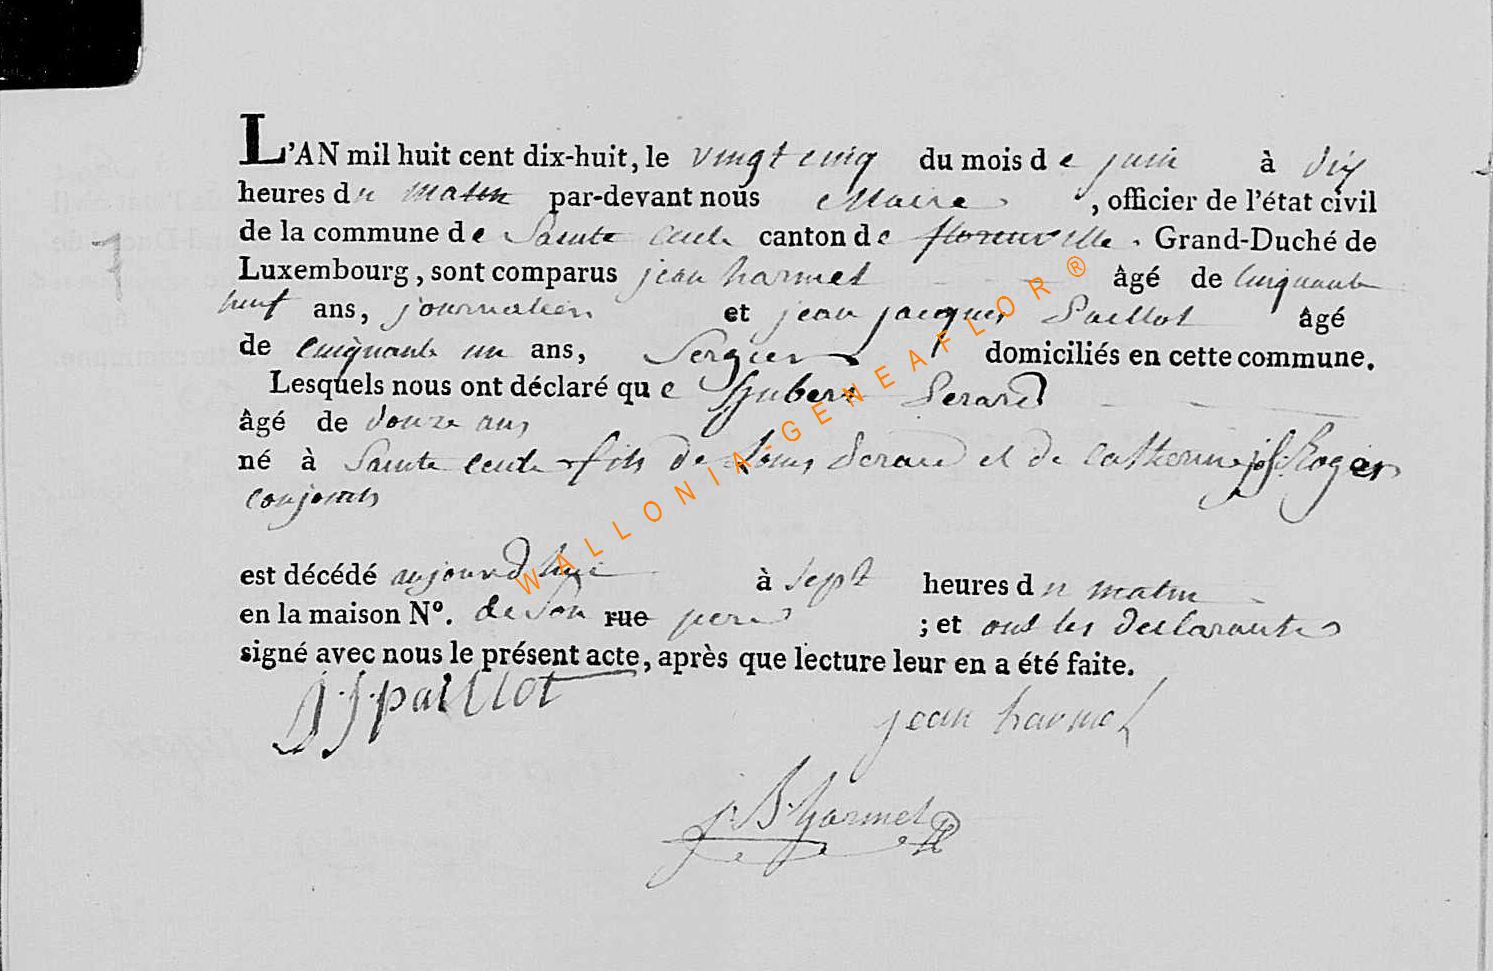 L'AN mil huit cent dix-huit, le vingt cinq du mois de juin à dix
heures du matin par-devant nous Maire , officier de l'état civil
de la commune de Sainte Cecile canton de florenville . Grand-Duché de
Luxembourg, sont comparus jean harmel âgé de cinquante
neuf ans, journalier et jean jacques Paillot âgé
de cinquante un ans, Sergier domiciliés en cette commune.
Lesquels nous ont déclaré que hubert Gerard
âgé de douze ans
né à Sainte Cecile fils de Louis Gerard et de Catherine jph Roger
conjoints
est décédé aujourd'hui à Sept heures du matin
en la maison Nº. de Son rue pere ; et ont les declarants
signé avec nous le présent acte, après que lecture leur en a été faite.
J.J. paillot
jean harmel
j. B. harmel
WALLONIA-GENEAFLOR ®
1